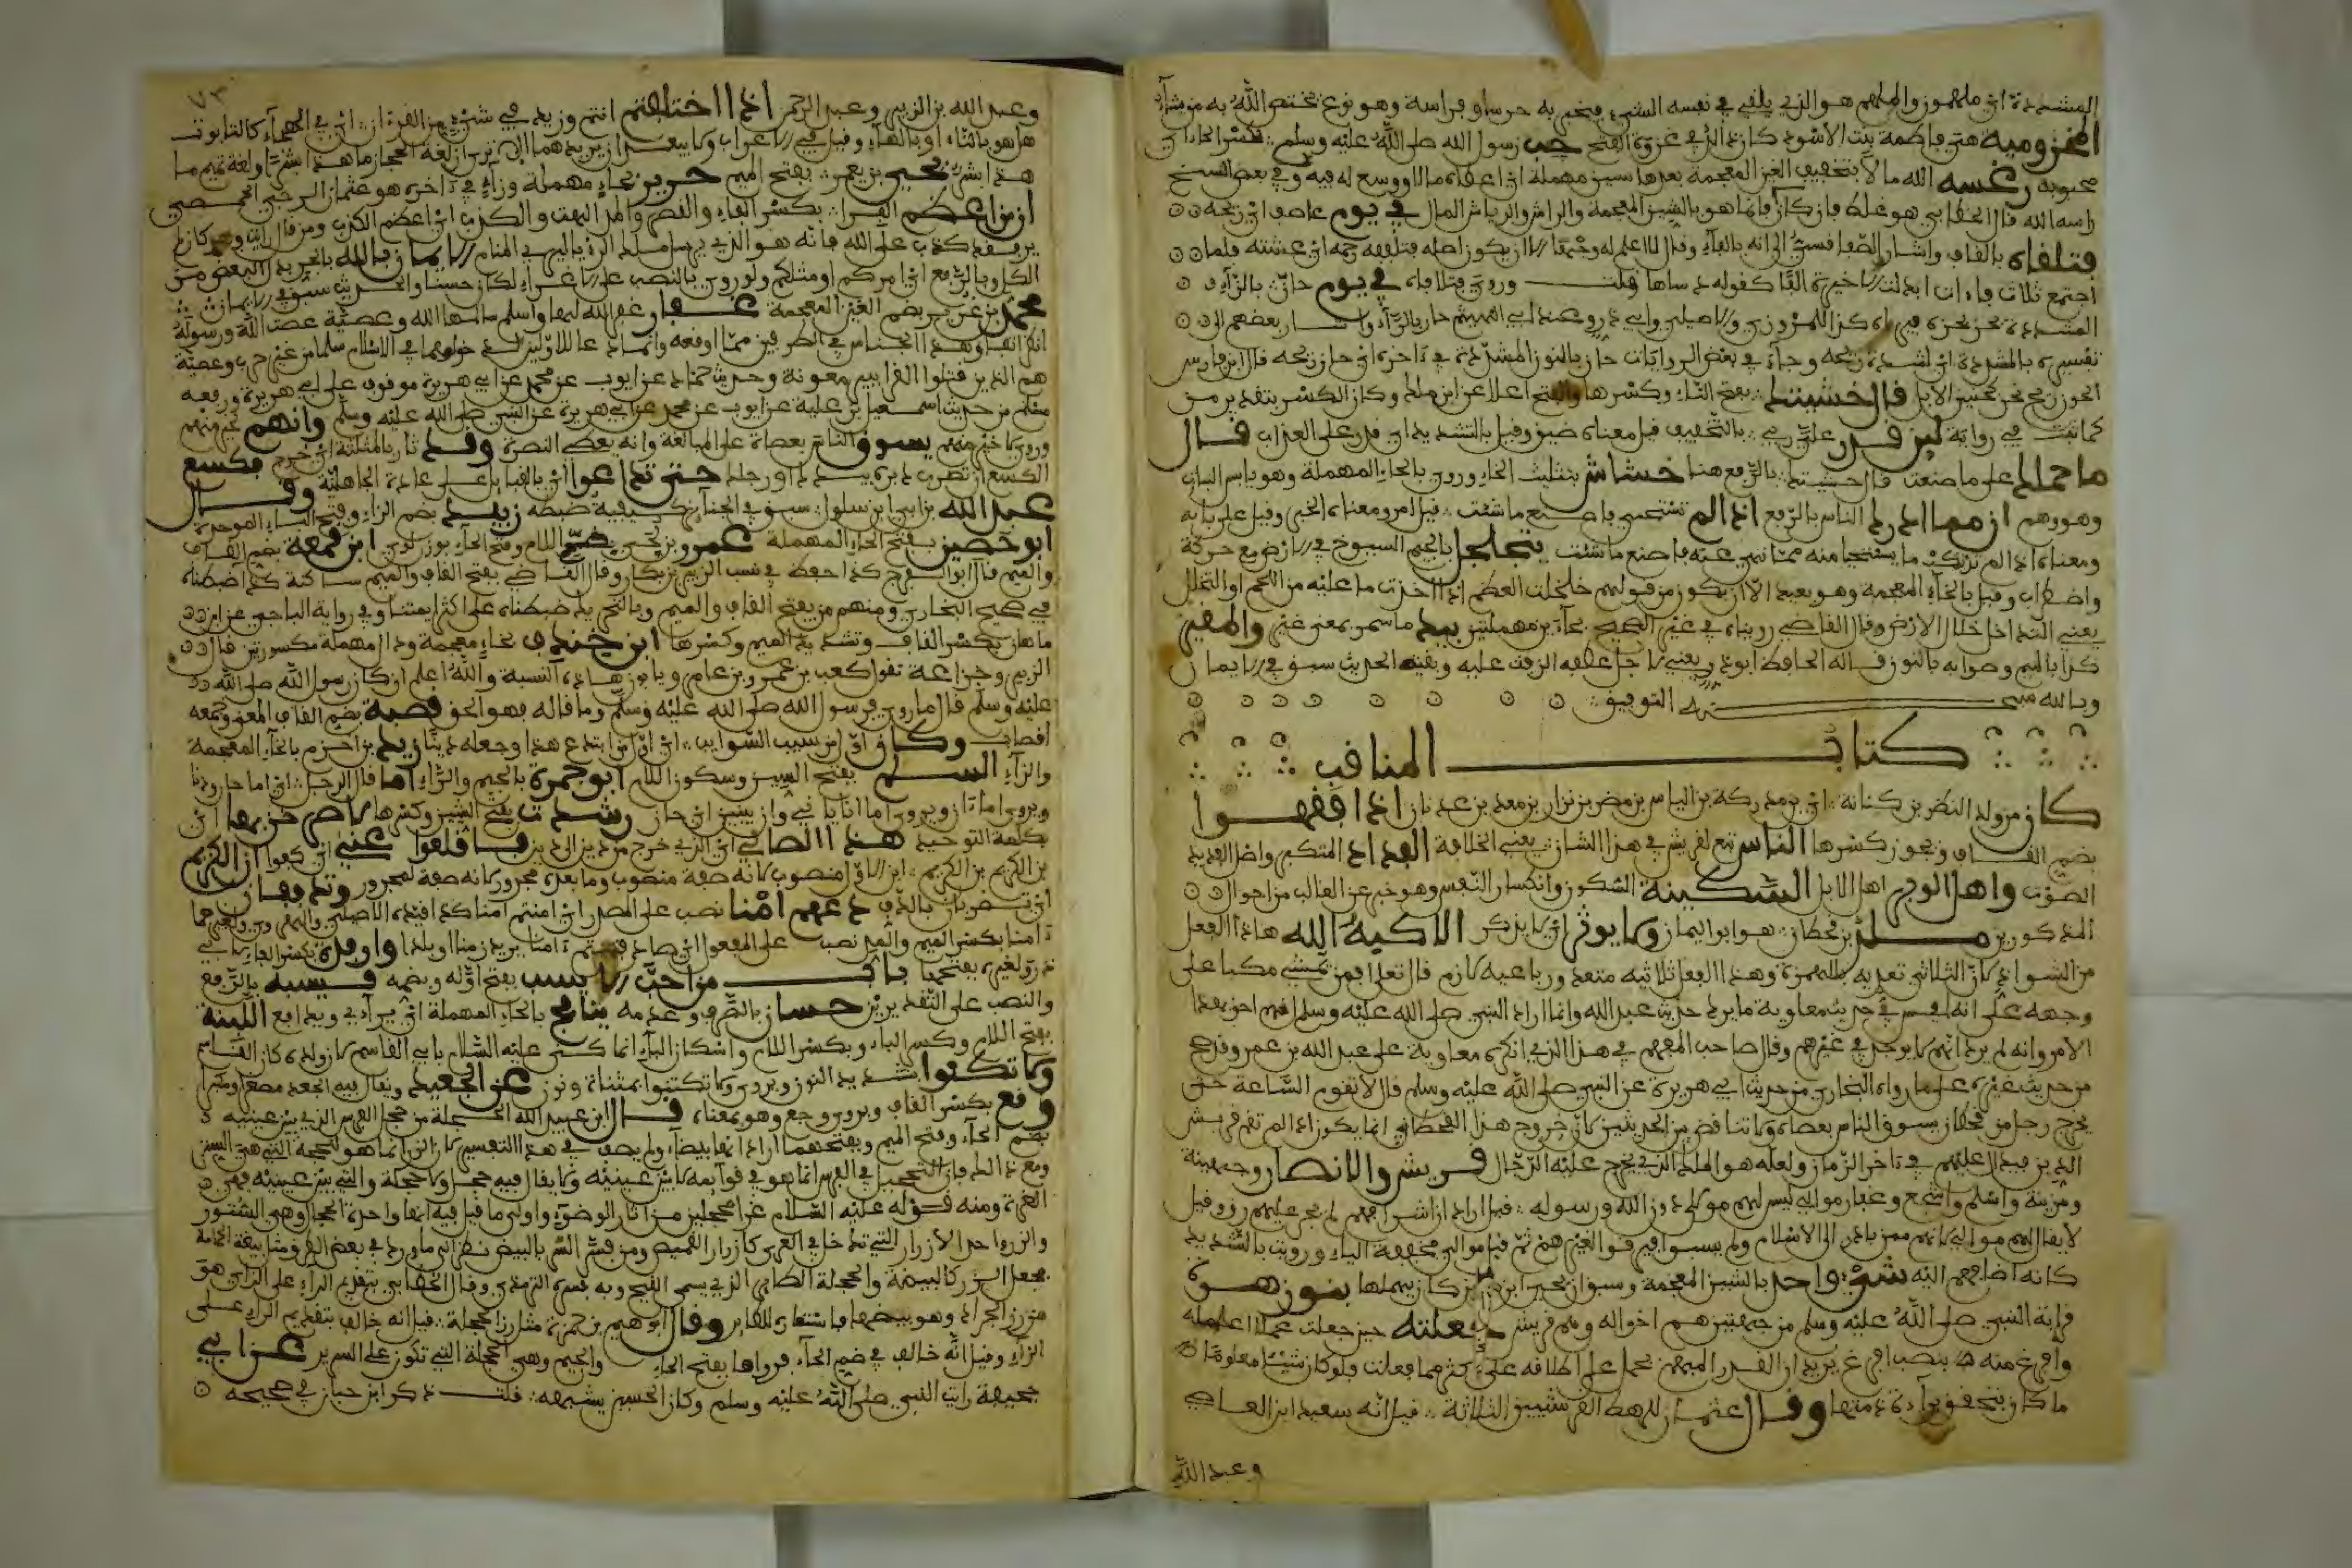 المشددة اي ملهمون والملهم هو الذي يلقى في نفسه الشيء فيخبر به حدسا وفراسة وهو نوع يختص الله به من يشاء
المخزومية هي فاطمة بنت الاسود كان ذلك في غزوة الفتح حب رسول الله صلى الله عليه وسلم بكسر الحاء اي
محبوبه رغسه الله مالا بتخفيف الغين المعجمة بعدها سين مهملة اي اعطاه مالا ووسع له فيه وفي بعض النسخ
راسه الله قال الخطابي هو غلط فان كان فانما هو بالشين المعجمة والراش والرياش المال في يوم عاصف اي ريحه
فتلقاه بالقاف واشار السفاقسي الى انه بالفاء وقال لا اعلم له وجها الا ان يكون اصله فتلففه رحمه اي غشيته فلما
اجتمع ثلاث فاءات ابدلت الاخيرة الفا كقوله دساها قلت وروي فتلافاه في يوم حار بالراء
المشددة نحر نحره فيما كذا للمروزي والاصيلي وابي ذر وعند ابي الهيثم حار بالراء واشار بعضهم الى
تفسيره بالمشددة اي لشدة ريحه وجاء في بعض الروايات حان بالنون المشددة في اخره اي حان ريحه قال ابن فارس
الحون ريح تحن كحنين الابل قال خشيتك بفتح التاء وكسرها والفتح اعلا عن ابن مالك وكان الكسر بتقدير من
كما ثبت في رواية لين قدر علي ربي بالتخفيف قيل معناه ضيق وقيل بالتشديد اي قدر علي العذاب قال
ما حملك على ما صنعت قال خشيتك بالرفع هنا خشاش بتثليث الخاء وروي بالحاء المهملة وهو يابس النبات
وهو وهم ان مما ادرك الناس بالرفع اذا لم تستحي فاصنع ما شئت قيل امر ومعناه الخبر وقيل على بابه
ومعناه اذا لم ترتكب ما يستحيا منه مما نهي عنه فاصنع ما شئت يتجلجل بالجيم السيوخ في الارض مع حركة
واضطراب وقيل بالخاء المعجمة وهو بعيد الا ان يكون من قولهم خلخلت العظم اذا اخذت ما عليه من اللحم او التخلل
يعني التداخل خلال الارض وقال القاضي رويناه في غير الصحيح بحاءين مهملتين بيد ما سمر بمعنى غير والمقير
كذا بالميم وصوابه بالنون قاله الحافظ ابو ذر ويعني لاجل عطفه الزفت عليه وبقية الحديث سبق في الايمان
وبالله سبحانه التوفيق
كتاب المناقب
كان من ولد النضر بن كنانة اي بن مدركة بن الياس بن مضر بن نزار بن معد بن عدنان اذا فقهوا
بضم القاف ويجوز كسرها الناس تبع لقريش في هذا الشان يعني الخلافة الفداد المتكبر واصل الفديد
الصوت واهل الوبر اهل الابل السكينة السكون وانكسار النفس وهو خبر عن الغالب من احوال
المذكورين من ملك بن قحطان هو ابو اليمان ولا يوثر اي لا يذكر الا كبه الله هاذا الفعل
من الشواذ كان الثلاثي تعديه بالهمزة وهذا الفعل ثلاثيه متعد ورباعيه لازم قال تعلى افمن يمشي مكبا على
وجهه على انه ليس في حديث معاوية ما يرد حديث عبد الله وانما اراد النبي صلى الله عليه وسلم انهم احق بهذا
الامر وانه لم يرد انه لا يوجد في غيرهم وقال صاحب المفهم في هذا الذي انكره معاوية على عبد الله بن عمرو قد صح
من حديث غيره على ما رواه البخاري من حديث ابي هريرة عن النبي صلى الله عليه وسلم قال لا تقوم الساعة حتى
يخرج رجل من قحطان يسوق الناس بعصاه ولا تناقض بين الحديثين لان خروج هذا القحطاني انما يكون اذا لم تقم قريش
الدين فيدال عليهم في اخر الزمان ولعله هو الملك الذي يخرج عليه الدجال قريش والانصار وجهينة
ومزينة واسلم واشجع وغفار موالي ليس لهم مولى دون الله ورسوله قيل اراد ان اشرافهم لم يجر عليهم رق وقيل
لا يقال لهم موالي لانهم ممن بادر الى الاسلام ولم يسبوا فيرقوا لغيرهم ثم قيل موالي مخففة الياء ورويت بالتشديد
كانه اضافهم اليه شيء واحد بالشين المعجمة وسبق ان يحيى ابن كان يهملها بنو زهرة
قرابة النبي صلى الله عليه وسلم من جهتين هم اخواله وهم قريش جعلته حين جعلت عملا اعمله
وافرغ منه بنصب افرغ يريد ان القدر المبهم يحمل على اطلاقه على اكثر مما فعلت فلو كان شيئا معلوما
ما كان تتحقق براءة ذمتها وقال عثمان للرهط القرشيين الثلاثة قيل انه سعيد ابن العاصي
وعبد الله
٧٣
وعبد الله بن الزبير وعبد الرحمن اذا اختلفتم انتم وزيد في شيء من القرءان اي في الهجاء كالتابوت
هل هو بالتاء او بالهاء وقيل في الاعراب ولا يبعد ان يريدهما الا ترى ان لغة الحجاز ما هذا بشرا ولغة تميم ما
هذا بشر يحيى بن يعمر بفتح الميم حريز بحاء مهملة وزاي في اخره هو عثمان الرحبي الحمصي
ان من اعظم الفرا بكسر الفاء والقصر والمد البهت والكذب اي اعظم الكذب ومن قال رايت ولم
ير فقد كذب على الله فانه هو الذي يرسل ملك الرؤيا ليريه المنام الايمان بالله
محمد بن غرير بضم الغين المعجمة غفار غفر الله لها واسلم سالمها الله وعصية عصت الله ورسوله
هم الذين قتلوا القرا ببير معونة وحديث حماد عن ايوب عن محمد عن ابي هريرة موقوف على ابي هريرة ورفعه
مسلم من حديث اسمعيل بن علية عن ايوب عن محمد عن ابي هريرة عن النبي صلى الله عليه وسلم وانهم لخير منهم
وروي لاخير منهم يسوق الناس بعصاه على المبالغة وانه يعطى النصرة وقد ثاب بالمثلثة اي خرج فكسع
الكسع ان تضرب دبره بيدك او رجلك حتى تداعوا اي بالقبايل على عادة الجاهلية وقال
عبد الله بن ابي ابن سلول سبق في الجنائز كيفية ضبطه زبيد بضم الزاي وفتح الباء الموحدة
ابو حصين بفتح الحاء المهملة عمرو بن لحي بضم اللام وفتح الحاء بوزن لؤي ابن قمعة بضم القاف
والميم قال ابو الفرج كذا حفظ في نسب الزبير بن بكار وقال القاضي بفتح القاف والميم ساكنة كذا ضبطناه
في صحيح البخاري ومنهم من يفتح القاف والميم وبالتحريك ضبطناه على اكثر ايمتنا وفي رواية الباجي عن ابن
ماهان بكسر القاف وتشديد الميم وكسرها ابن خندف بخاء معجمة ودال مهملة مكسورتين قال
الزبير وخزاعة تقول كعب بن عمرو بن عامر ويابون هاذه النسبة والله اعلم ان كان رسول الله صلى الله
عليه وسلم قال ما روي فرسول الله صلى الله عليه وسلم وما قاله فهو الحق قصبه بضم القاف المعى وجمعه
اقصاب وكان اول من سيب السوايب اي اول من ابتدع هذا وجعله دينا زيد بن اخزم بالخاء المعجمة
والزاي السلم بفتح السين وسكون اللام ابو جمرة بالجيم والراء اما قال الرجل
ويروى اما ان ويروى اما انا يا نبي وان يتبين اي حان رشدت بفتح الشين وكسرها لاصرخن بها اي
بكلمة التوحيد هذا الصابي اي الذي خرج من دين الى دين فاقلعوا عني اي كفوا ان الكريم
بن الكريم بن الكريم ابن الاول منصوب لانه صفة منصوب وما بعده مجرور لانه صفة لمجرور وتدففان
اي تضربان بالدف دعهم امنا نصب على المصدر اي امنتم امنا
باب من احب ان لا يسب بفتح اوله وبضمه فيسبه بالرفع
والنصب على التقديرين حسان بالصرف وعدمه ينافح بالحاء المهملة اي يرامي ويدافع اللبنة
بفتح اللام وكسر الباء وبكسر اللام واسكان الباء انما كني عليه السلام بابي القاسم لان ولده كان القاسم
ولا تكنوا بتشديد النون ويروى ولا تكتنوا بمثناة ونون عن الجعيد ويقال فيه الجعد مصغرا ومكبرا
وقع بكسر القاف ويروى وجع وهو بمعناه قال ابن عبيد الله الحجلة من حجل الفرس الذي بين عينيه
بضم الحاء وفتح الجيم وبفتحهما اراد انها بيضاء ولم يصب في هذا التفسير
ومع ذلك فان التحجيل في الفرس انما هو في قوائمه لا بين عينيه
الغرة ومنه قوله عليه السلام غرا محجلين من اثار الوضوء واولى ما قيل فيه انها واحدة الحجال وهي الستور
والزر واحد الازرار التي تدخل في العرى كازرار القميص
يجعل الزر كالبيضة والحجلة الطاير الذي يسمى القبج وبه فسره الترمذي وقال الخطابي بتقديم الراء على الزاي هو
من رز الجراد وهو بيضها فاستعاره للطاير وقال ابرهيم بن حمزة مثل رز الحجلة قيل انه خالف بتقديم الراء على
الزاي وقيل انه خالف في ضم الحاء فرواها بفتح الحاء والجيم وهي الحجلة التي تكون على السرير عن ابي
جحيفة رايت النبي صلى الله عليه وسلم وكان الحسن يشبهه قلت ذكر ابن حبان في صحيحه